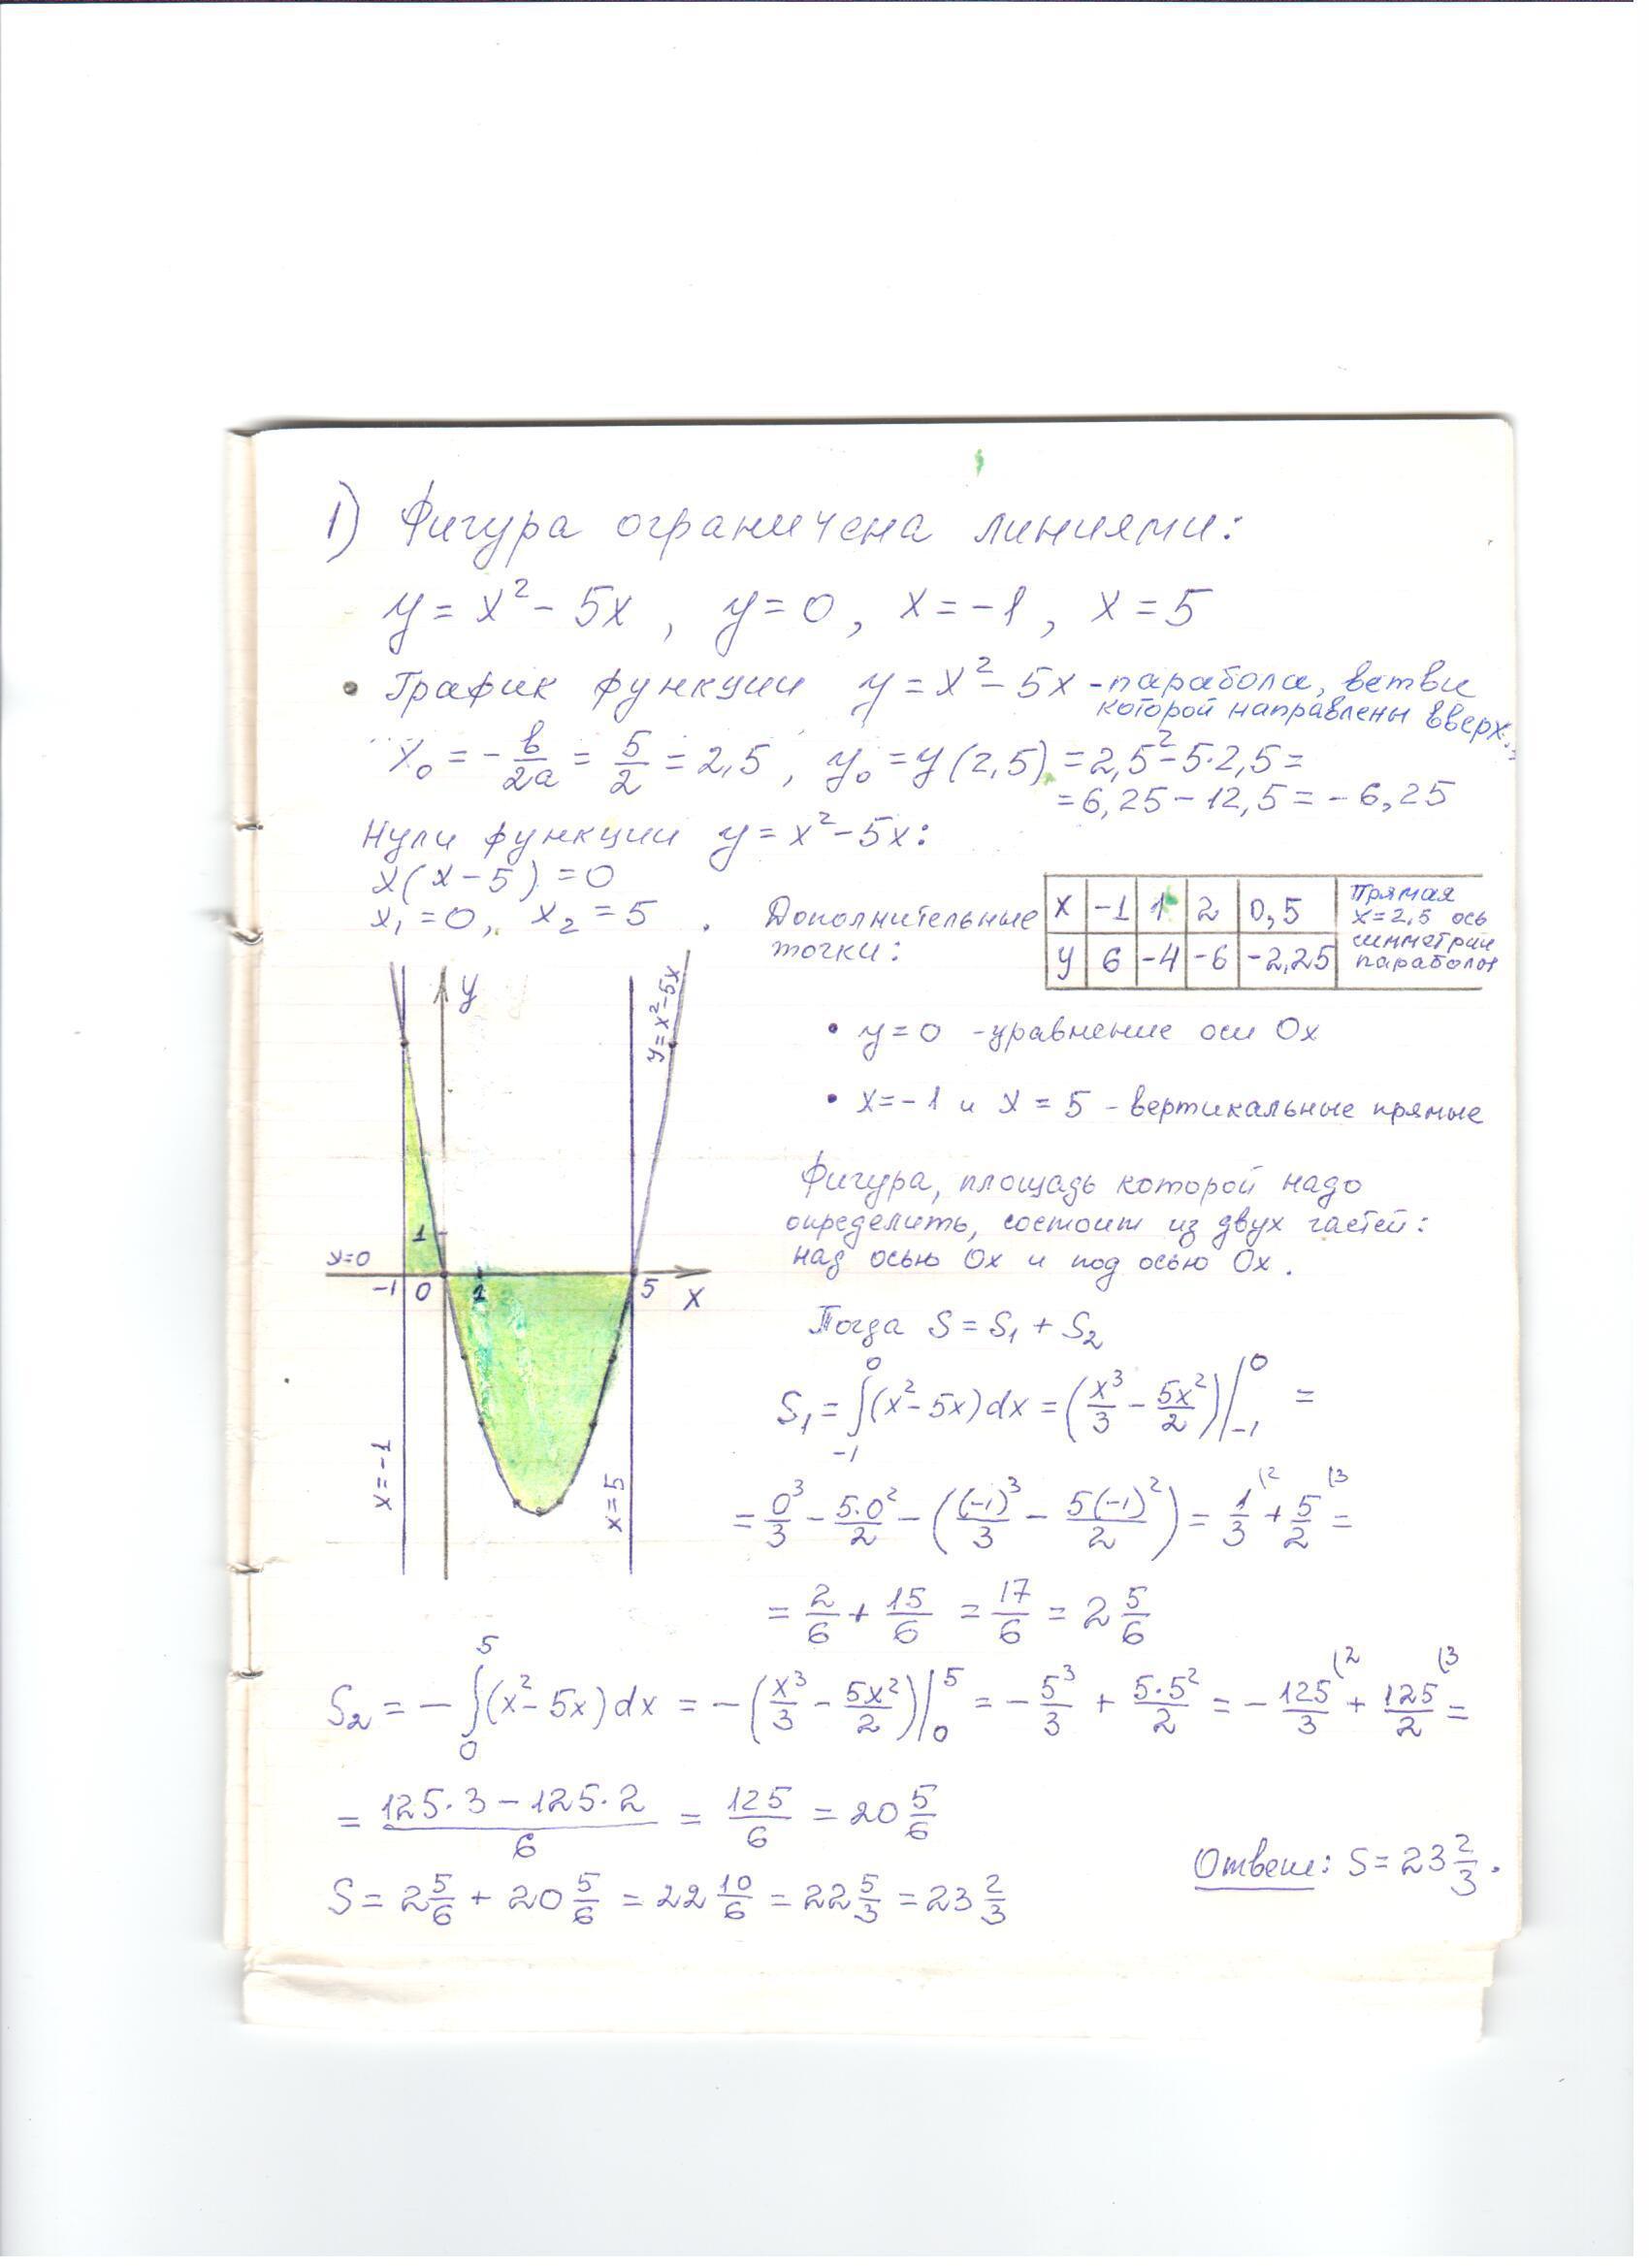 1) Фигура ограничена линиями:
y = x² - 5x , y = 0 , x = -1 , x = 5
• График функции y = x² - 5x - парабола, ветви
которой направлены вверх.
x₀ = -b/2a = 5/2 = 2,5 , y₀ = y(2,5) = 2,5² - 5·2,5 =
= 6,25 - 12,5 = -6,25
Нули функции y = x² - 5x:
x(x - 5) = 0
x₁ = 0, x₂ = 5 .
Дополнительные
точки:
x | -1 | 1 | 2 | 0,5
y | 6 | -4 | -6 | -2,25
Прямая
x = 2,5 ось
симметрии
параболы
• y = 0 - уравнение оси Ox
• x = -1 и x = 5 - вертикальные прямые
y
y = x² - 5x
1
y=0
-1 0 1 5 x
x = -1
x = 5
Фигура, площадь которой надо
определить, состоит из двух частей:
над осью Ox и под осью Ox .
Тогда S = S₁ + S₂
S₁ = ∫₋₁⁰ (x² - 5x) dx = (x³/3 - 5x²/2)|₋₁⁰ =
= 0³/3 - 5·0²/2 - ((-1)³/3 - 5(-1)²/2) = 1/3 (2 + 5/2 (3 =
= 2/6 + 15/6 = 17/6 = 2 5/6
S₂ = - ∫₀⁵ (x² - 5x) dx = -(x³/3 - 5x²/2)|₀⁵ = - 5³/3 + 5·5²/2 = - 125/3 (2 + 125/2 (3 =
= (125·3 - 125·2)/6 = 125/6 = 20 5/6
S = 2 5/6 + 20 5/6 = 22 10/6 = 22 5/3 = 23 2/3
Ответ: S = 23 2/3 .